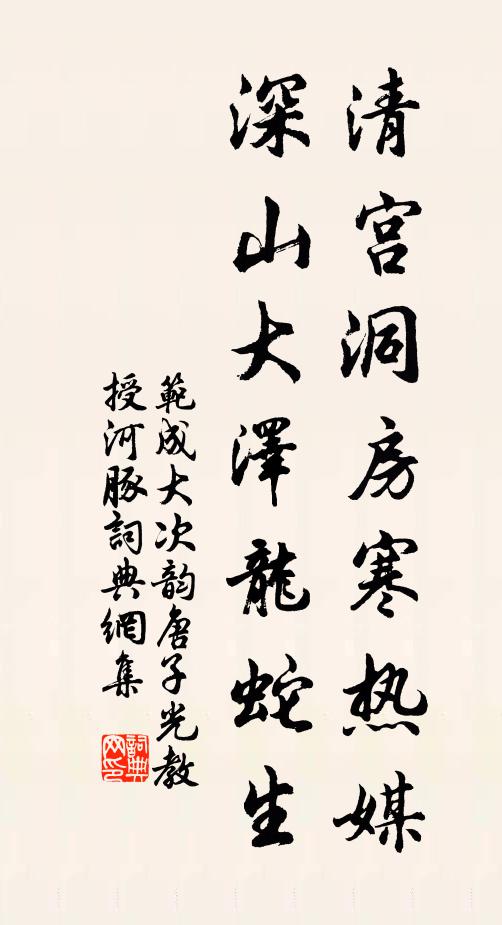 清宫洞房寒热媒
深山大澤龍蛇生
範成大次韵唐子光教
授河豚詞典網集
詞典網印